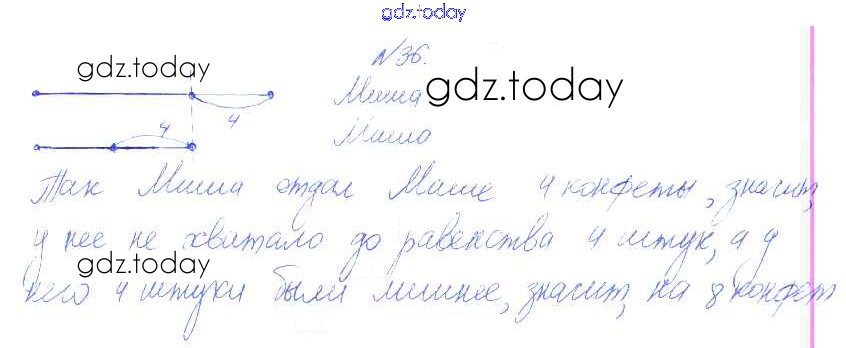 gdz.today
№36.
gdz.today
Миша gdz.today
4
4
Миша
Так Миша отдал Маше 4 конфеты, значит,
у нее не хватало до равенства 4 штук, а у
gdz.today
него 4 штуки были лишние, значит, на 8 конфет